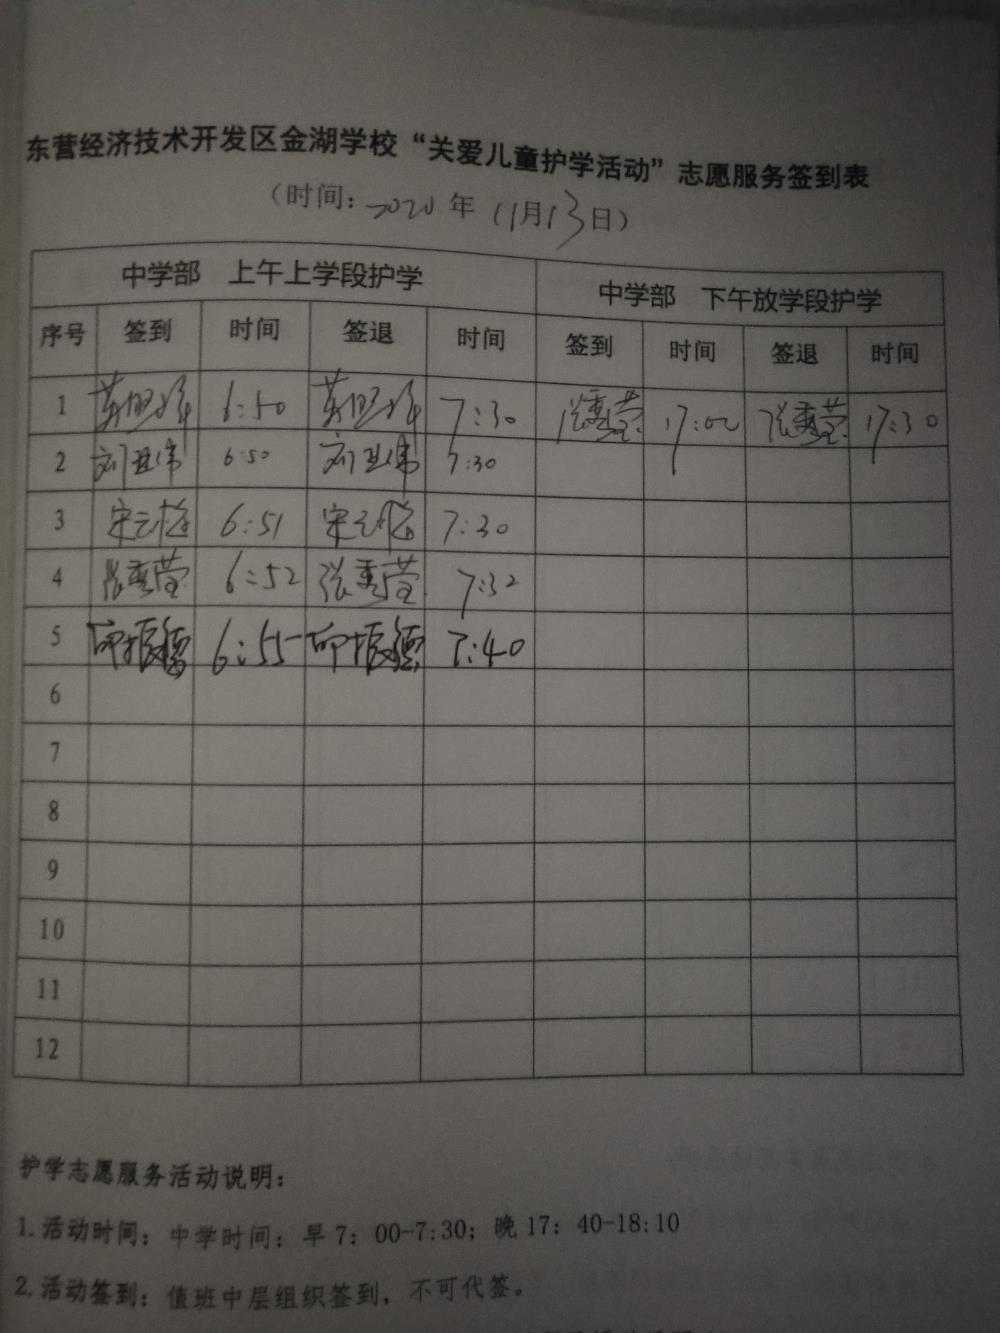 东营经济技术开发区金湖学校“关爱儿童护学活动”志愿服务签到表
(时间: 2020 年 11月13日)
中学部 上午上学段护学 中学部 下午放学段护学
序号 签到 时间 签退 时间 签到 时间 签退 时间
1 6:50 7:30 张秀莹 17:00 张秀莹 17:30
2 刘亚伟 6:50 刘亚伟 7:30
3 6:51 7:30
4 张秀莹 6:52 张秀莹 7:32
5 6:55 7:40
6
7
8
9
10
11
12
护学志愿服务活动说明:
1.活动时间: 中学时间: 早7: 00-7:30; 晚17: 40-18:10
2.活动签到: 值班中层组织签到, 不可代签。